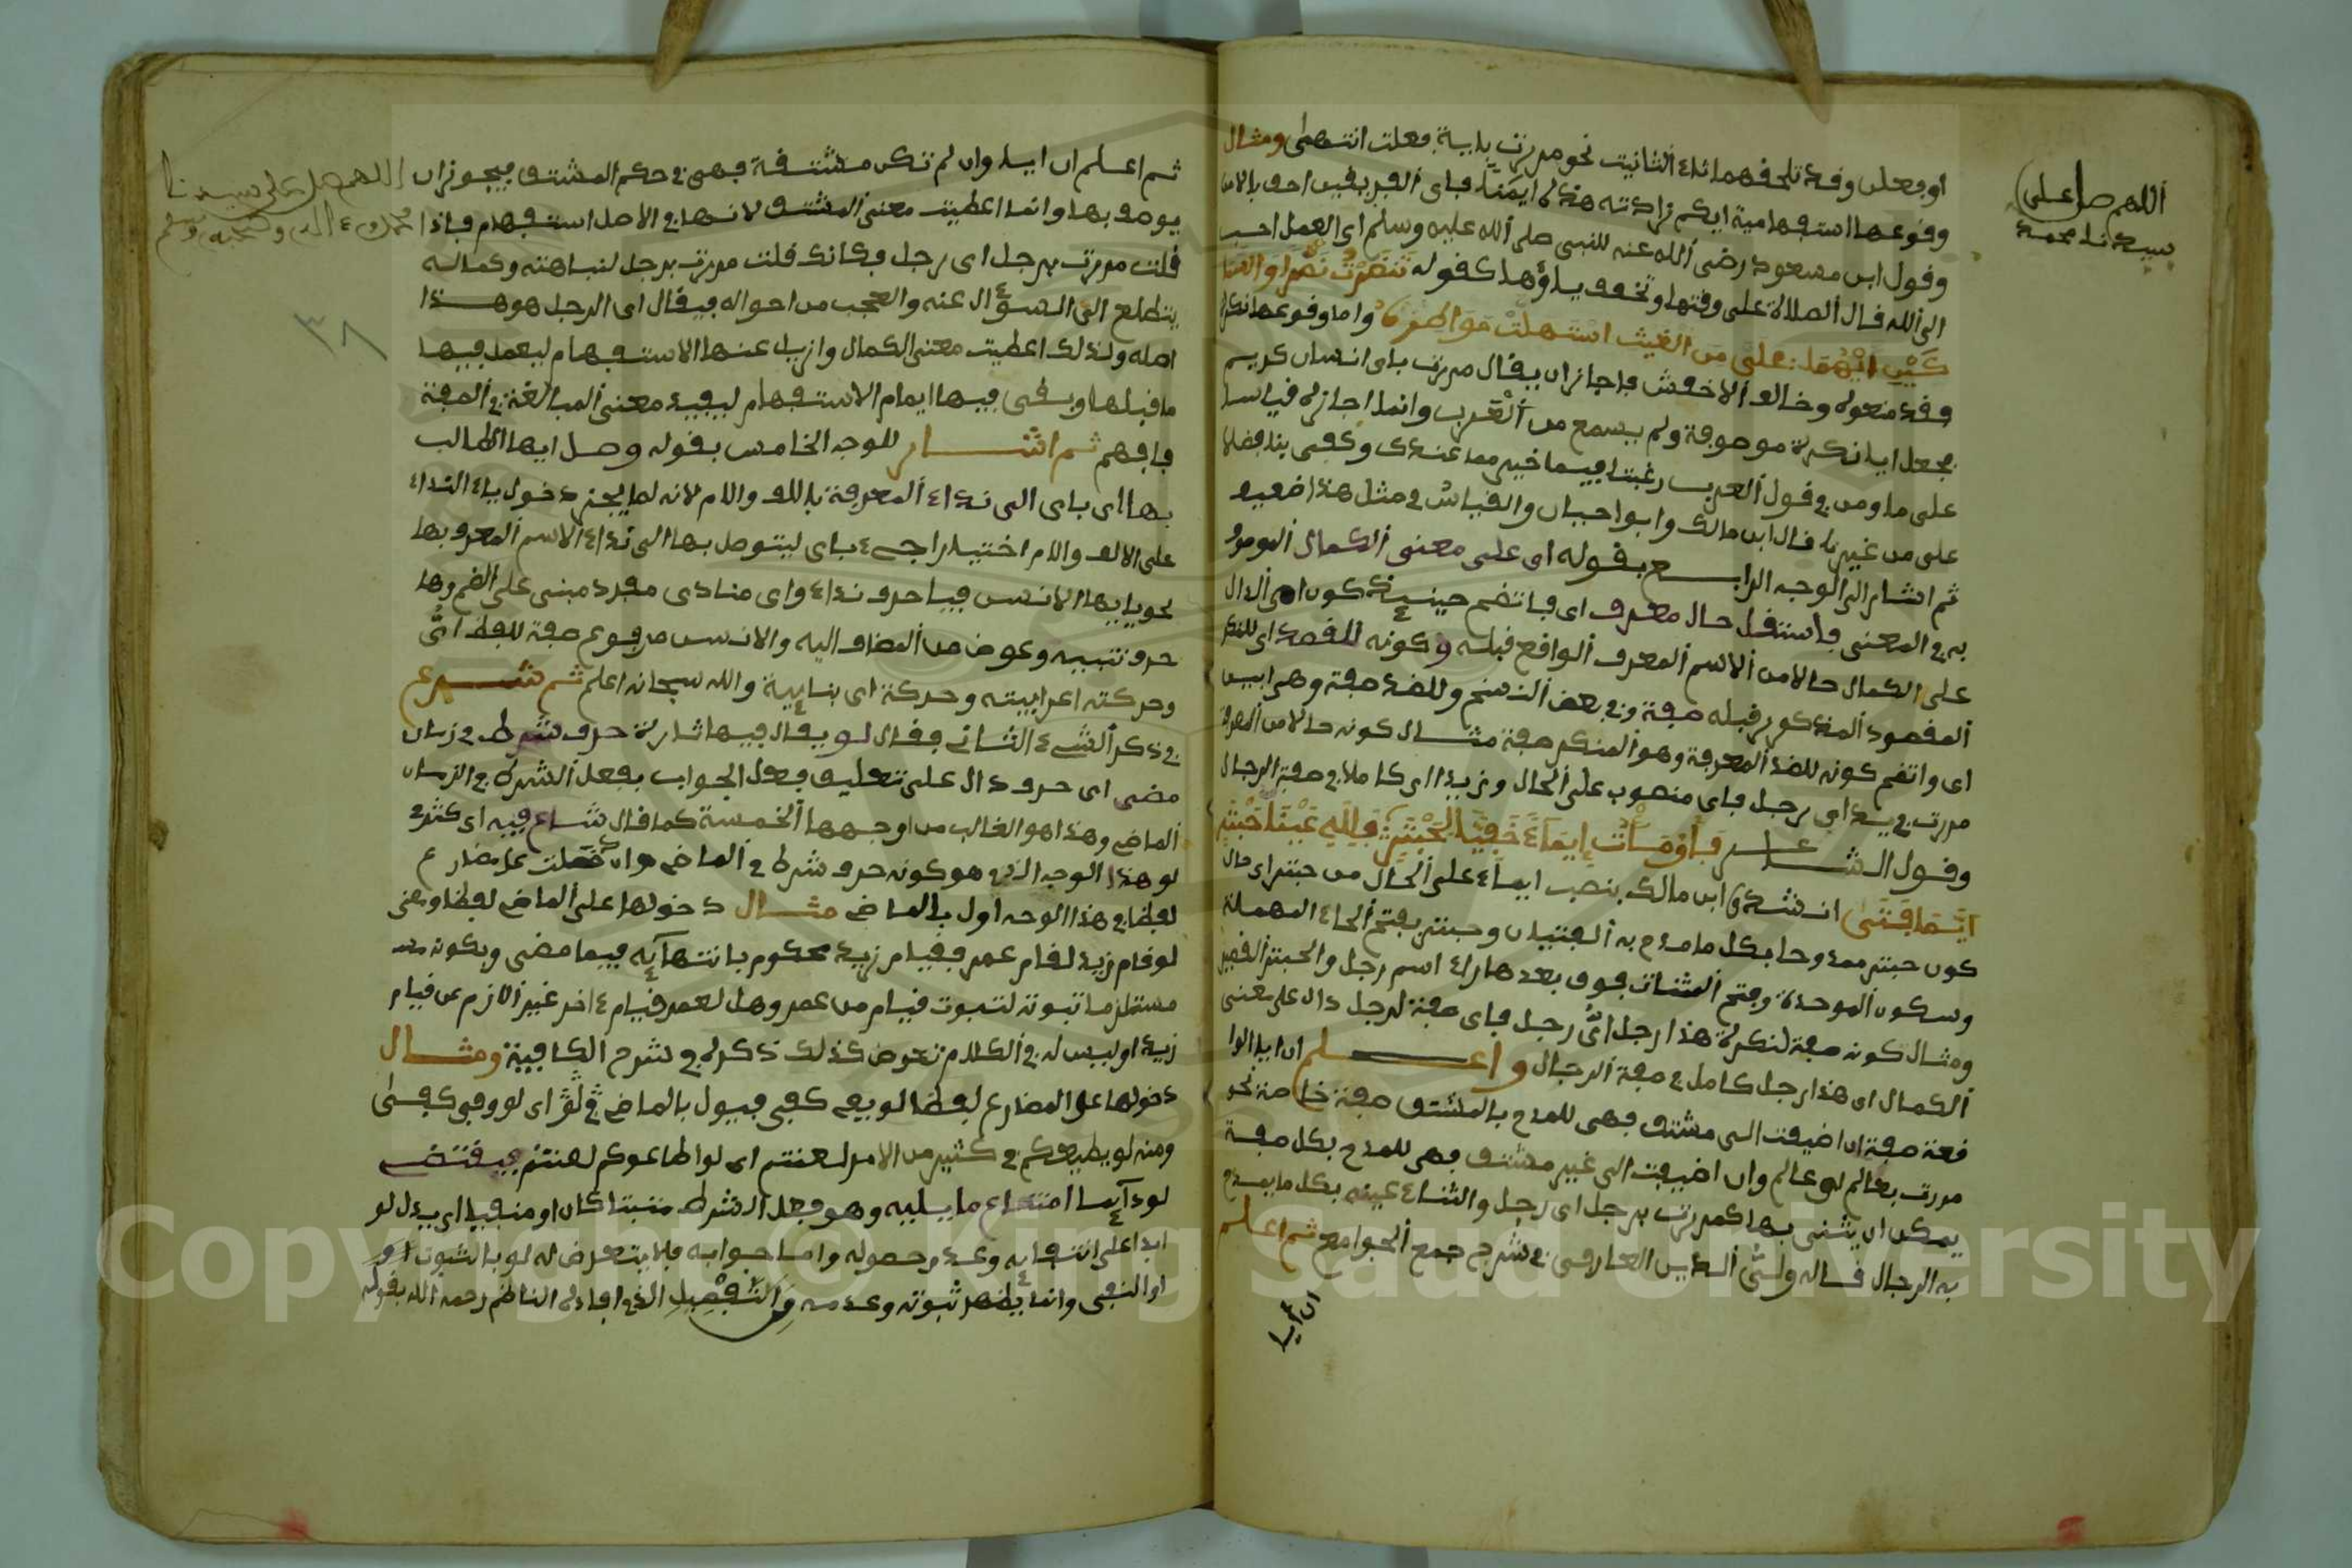 اللهم صل على
سيدنا محمد
او فعلن وقد تلحقهما تاء التانيث نحو مررت بابية فعلت انتهى ومثال
وقوعها استفهامية ايكم زادته هذه ايمنا فاى الفريقين احق بالامن
وقول ابن مسعود رضي الله عنه للنبي صلى الله عليه وسلم اى العمل احب
الى الله قال الصلاة على وقتها وتخفف ياؤها كقوله تنظرت نصرا والسما
كين ايهما على من الغيث استهلت مواطره واما وقوعها نكرة
وخالف الاخفش فاجاز ان يقال مررت باى انسان كريم
بجعل ايا نكرة موصوفة ولم يسمع من العرب وانما اجازه قياسا
على ما ومن في قول العرب رغبت فيما خير مما عندك وكفى بنا فضلا
على من غيرنا قال ابن مالك وابو حيان والقياس في مثل هذا ضعيف
ثم اشار الى الوجه الرابع بقوله اى على معنى الكمال
به في المعنى حال معرف اى كون اى الدال
على الكمال حالا من الاسم المعرف الواقع قبله وكونه للقصد اى للنكر
المقصود المذكور قبله صفة وفي بعض النسخ وللضد صفة وهى ابين
اى واتضح كونه للضد المعرفة وهو المنكر صفة مثال كونه حالا من المعرفة
مررت بزيد اى رجل فاى منصوب على الحال وزيد اى كاملا في صفة الرجال
وقول الشاعر فاومات ايماء خفيا لحبتر فلله عينا حبتر
ايما فتى انشده ابن مالك بنصب ايما على الحال من حبتر اى حال
كون حبتر ممدوحا بكل ما مدح به الفتيان وحبتر بفتح الحاء المهملة
وسكون الموحدة وفتح المثناة فوق بعدها راء اسم رجل والحبتر القصير
ومثال كونه صفة لنكرة هذا رجل اى رجل فاى صفة لرجل دال على معنى
الكمال اى هذا رجل كامل في صفة الرجال واعلم ان ايا الوا
قعة صفة ان اضيفت الى مشتق فهى للمدح بالمشتق صفة خاصة نحو
مررت بعالم اى عالم وان اضيفت الى غير مشتق فهى للمدح بكل صفة
يمكن ان يثنى بها كمررت برجل اى رجل والثناء عينه بكل ما يمدح
به الرجال قاله ولى الدين العارقى في شرح جمع الجوامع ثم اعلم
ان ايا
ثم اعلم ان ايا وان لم تكن مشتقة فهى في حكم المشتق فيجوز ان
اللهم صل على سيدنا
محمد وءاله وصحبه وسلم
يوصف بها وانما اعطيت معنى المشتق لانها في الاصل استفهام فاذا
قلت مررت برجل اى رجل فكانك قلت مررت برجل لنباهته وكماله
يتطلع الى السؤال عنه والعجب من احواله فيقال اى الرجل هو هذا
٣٨
اصله ولذلك اعطيت معنى الكمال وازيل عنها الاستفهام ليعمل فيها
ما قبلها وبقى فيها ابهام الاستفهام ليفيد معنى المبالغة في الصفة
فافهم ثم اشار للوجه الخامس بقوله وصل ايها الطالب
بها اى باى الى نداء المعرفة بالالف والام لانه لما يجز دخول ياء النداء
على الالف والام اختيارا جىء باى ليتوصل بها الى نداء الاسم المعرف بها
نحو يا ايها الانس فيا حرف نداء واى منادى مفرد مبني على الضم وها
حرف تنبيه وعوض من المضاف اليه والانس مرفوع صفة للفظ اى
وحركته اعرابيته وحركة اى بنايية والله سبحانه اعلم ثم شرع
في ذكر الشىء الثاني فقال لو يقال فيها تارة حرف شرط في زمان
مضى اى حرف دال على تعليق فعل الجواب بفعل الشرط في الزمان
الماضى وهذا هو الغالب من اوجهها الخمسة كما قال شاع فيه اى كثر
لو هذا الوجه الذى هو كونه حرف شرط في الماضى وان دخلت على مضارع
لفظا في هذا الوجه اول بالماضى مثال دخولها على الماضى لفظا ومعنى
لو قام زيد لقام عمر فقيام زيد محكوم بانتهائه فيما مضى وبكونه
مستلزما ثبوته لثبوت قيام من عمر وهل لعمر قيام ءاخر غير الازم عن قيام
زيد او ليس له في الكلام تعرض كذلك ذكره في شرح الكافية ومثال
دخولها على المضارع لفظا لو يفى كفى فيول بالماضى في لو اى لو وفى كفى
ومنه لو يطيعكم في كثير من الامر لعنتم اى لو اطاعوكم لعنتم فيقتضى
لو دايما امتناع ما يليه وهو فعل الشرط مثبتا كان او منفيا اى يدل لو
ابدا على انتفايه وعدم حصوله واما جوابه فلا يتعرض له لو بالثبوت او
او النفى وانما يظهر ثبوته وعدمه والتفصيل الذى افاده الناظم رحمه الله بقوله
Copyright © King Saud University